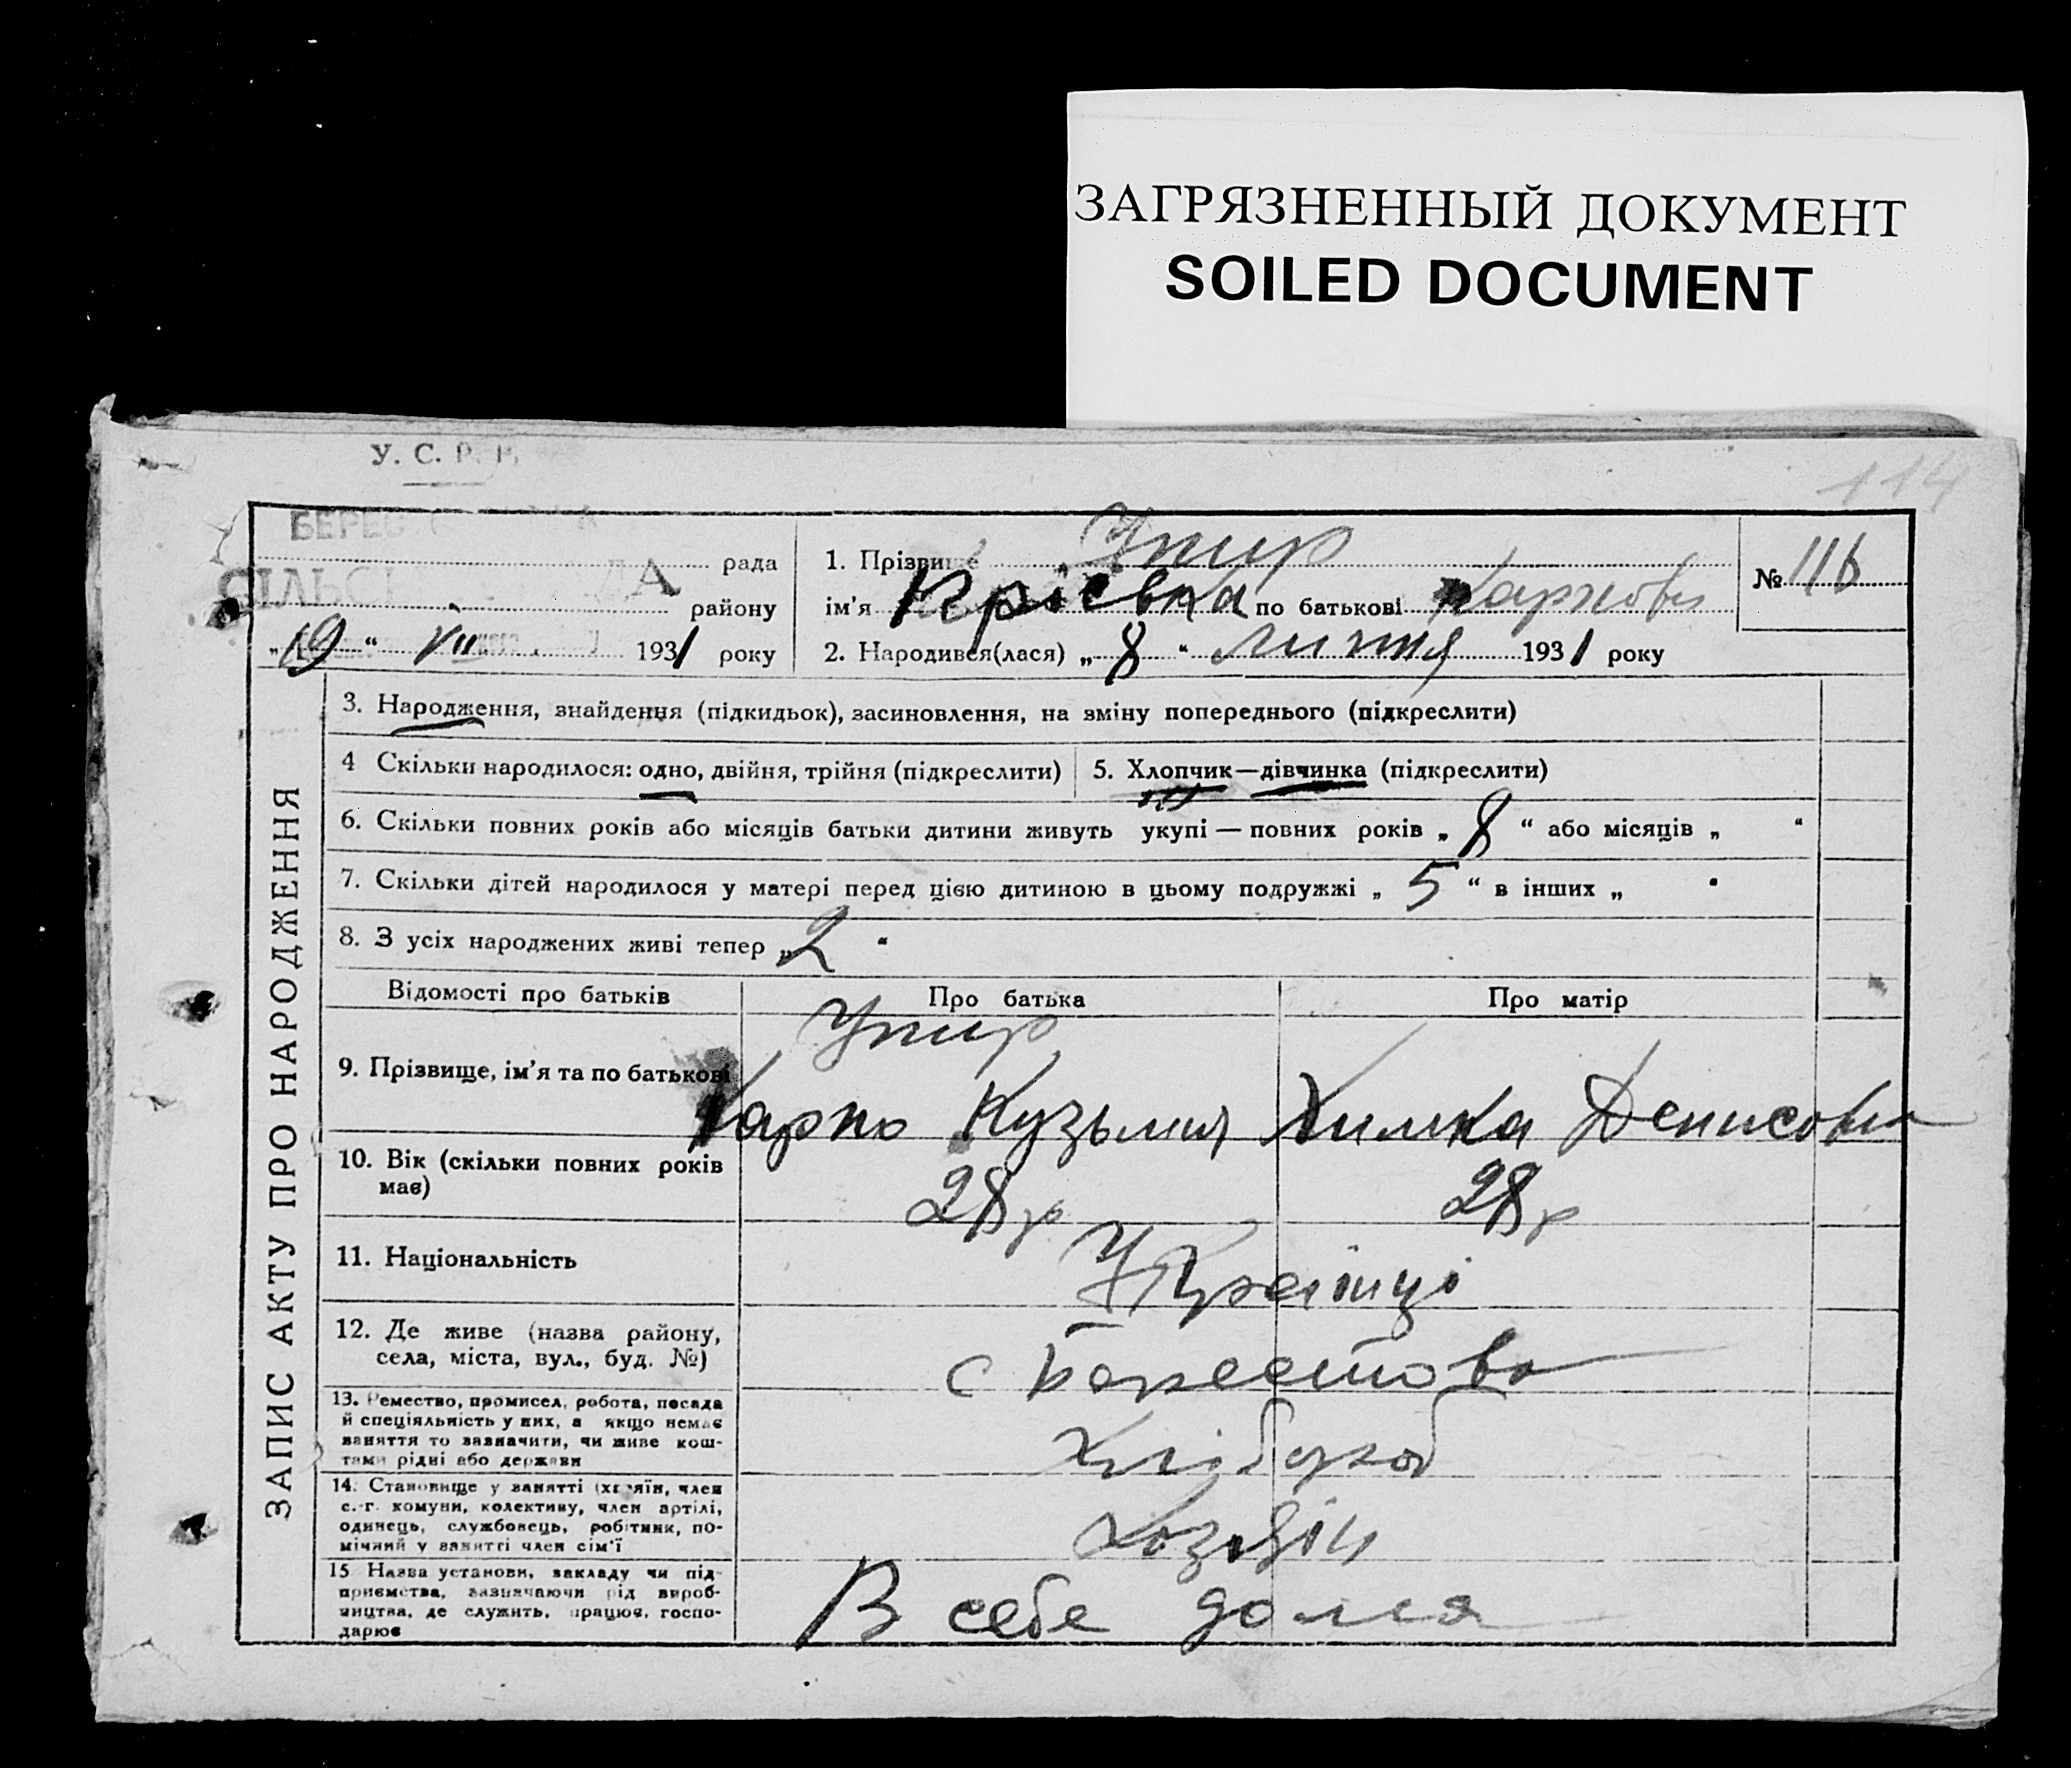 ЗАГРЯЗНЕННЫЙ ДОКУМЕНТ
SOILED DOCUMENT
У. С. Р. Р.
114
рада
району
„19“ VII 1931 року
1. Прізвище Упир
ім’я по батькові Карпови
2. Народився(лася) „8“ липня 1931 року
№ 116
ЗАПИС АКТУ ПРО НАРОДЖЕННЯ
3. Народження, знайдення (підкидьок), засиновлення, на зміну попереднього (підкреслити)
4 Скільки народилося: одно, двійня, трійня (підкреслити)
5. Хлопчик—дівчинка (підкреслити)
6. Скільки повних років або місяців батьки дитини живуть укупі — повних років „8“ або місяців „ “
7. Скільки дітей народилося у матері перед цією дитиною в цьому подружжі „5“ в інших „ “
8. З усіх народжених живі тепер „2“
Відомості про батьків Про батька Про матір
9. Прізвище, ім’я та по батькові
Упир
Карпо Кузьмич Химка Денисовна
10. Вік (скільки повних років
має)
28 р 28 р
11. Національність
Українці
12. Де живе (назва району,
села, міста, вул., буд. №)
с Берестова
13. Ремество, промисел, робота, посада
й спеціяльність у них, а якщо немає
заняття то зазначити, чи живе кош-
тами рідні або держави
Хлібороб
14. Становище у занятті (хазяїн, член
с.-г. комуни, колективу, член артілі,
одинець, службовець, робітник, по-
мічний у занятті член сім’ї
Хозяїн
15 Назва установи, закладу чи під-
приємства, зазначаючи рід вироб-
ництва, де служить, працює, госпо-
дарює
В себе дома